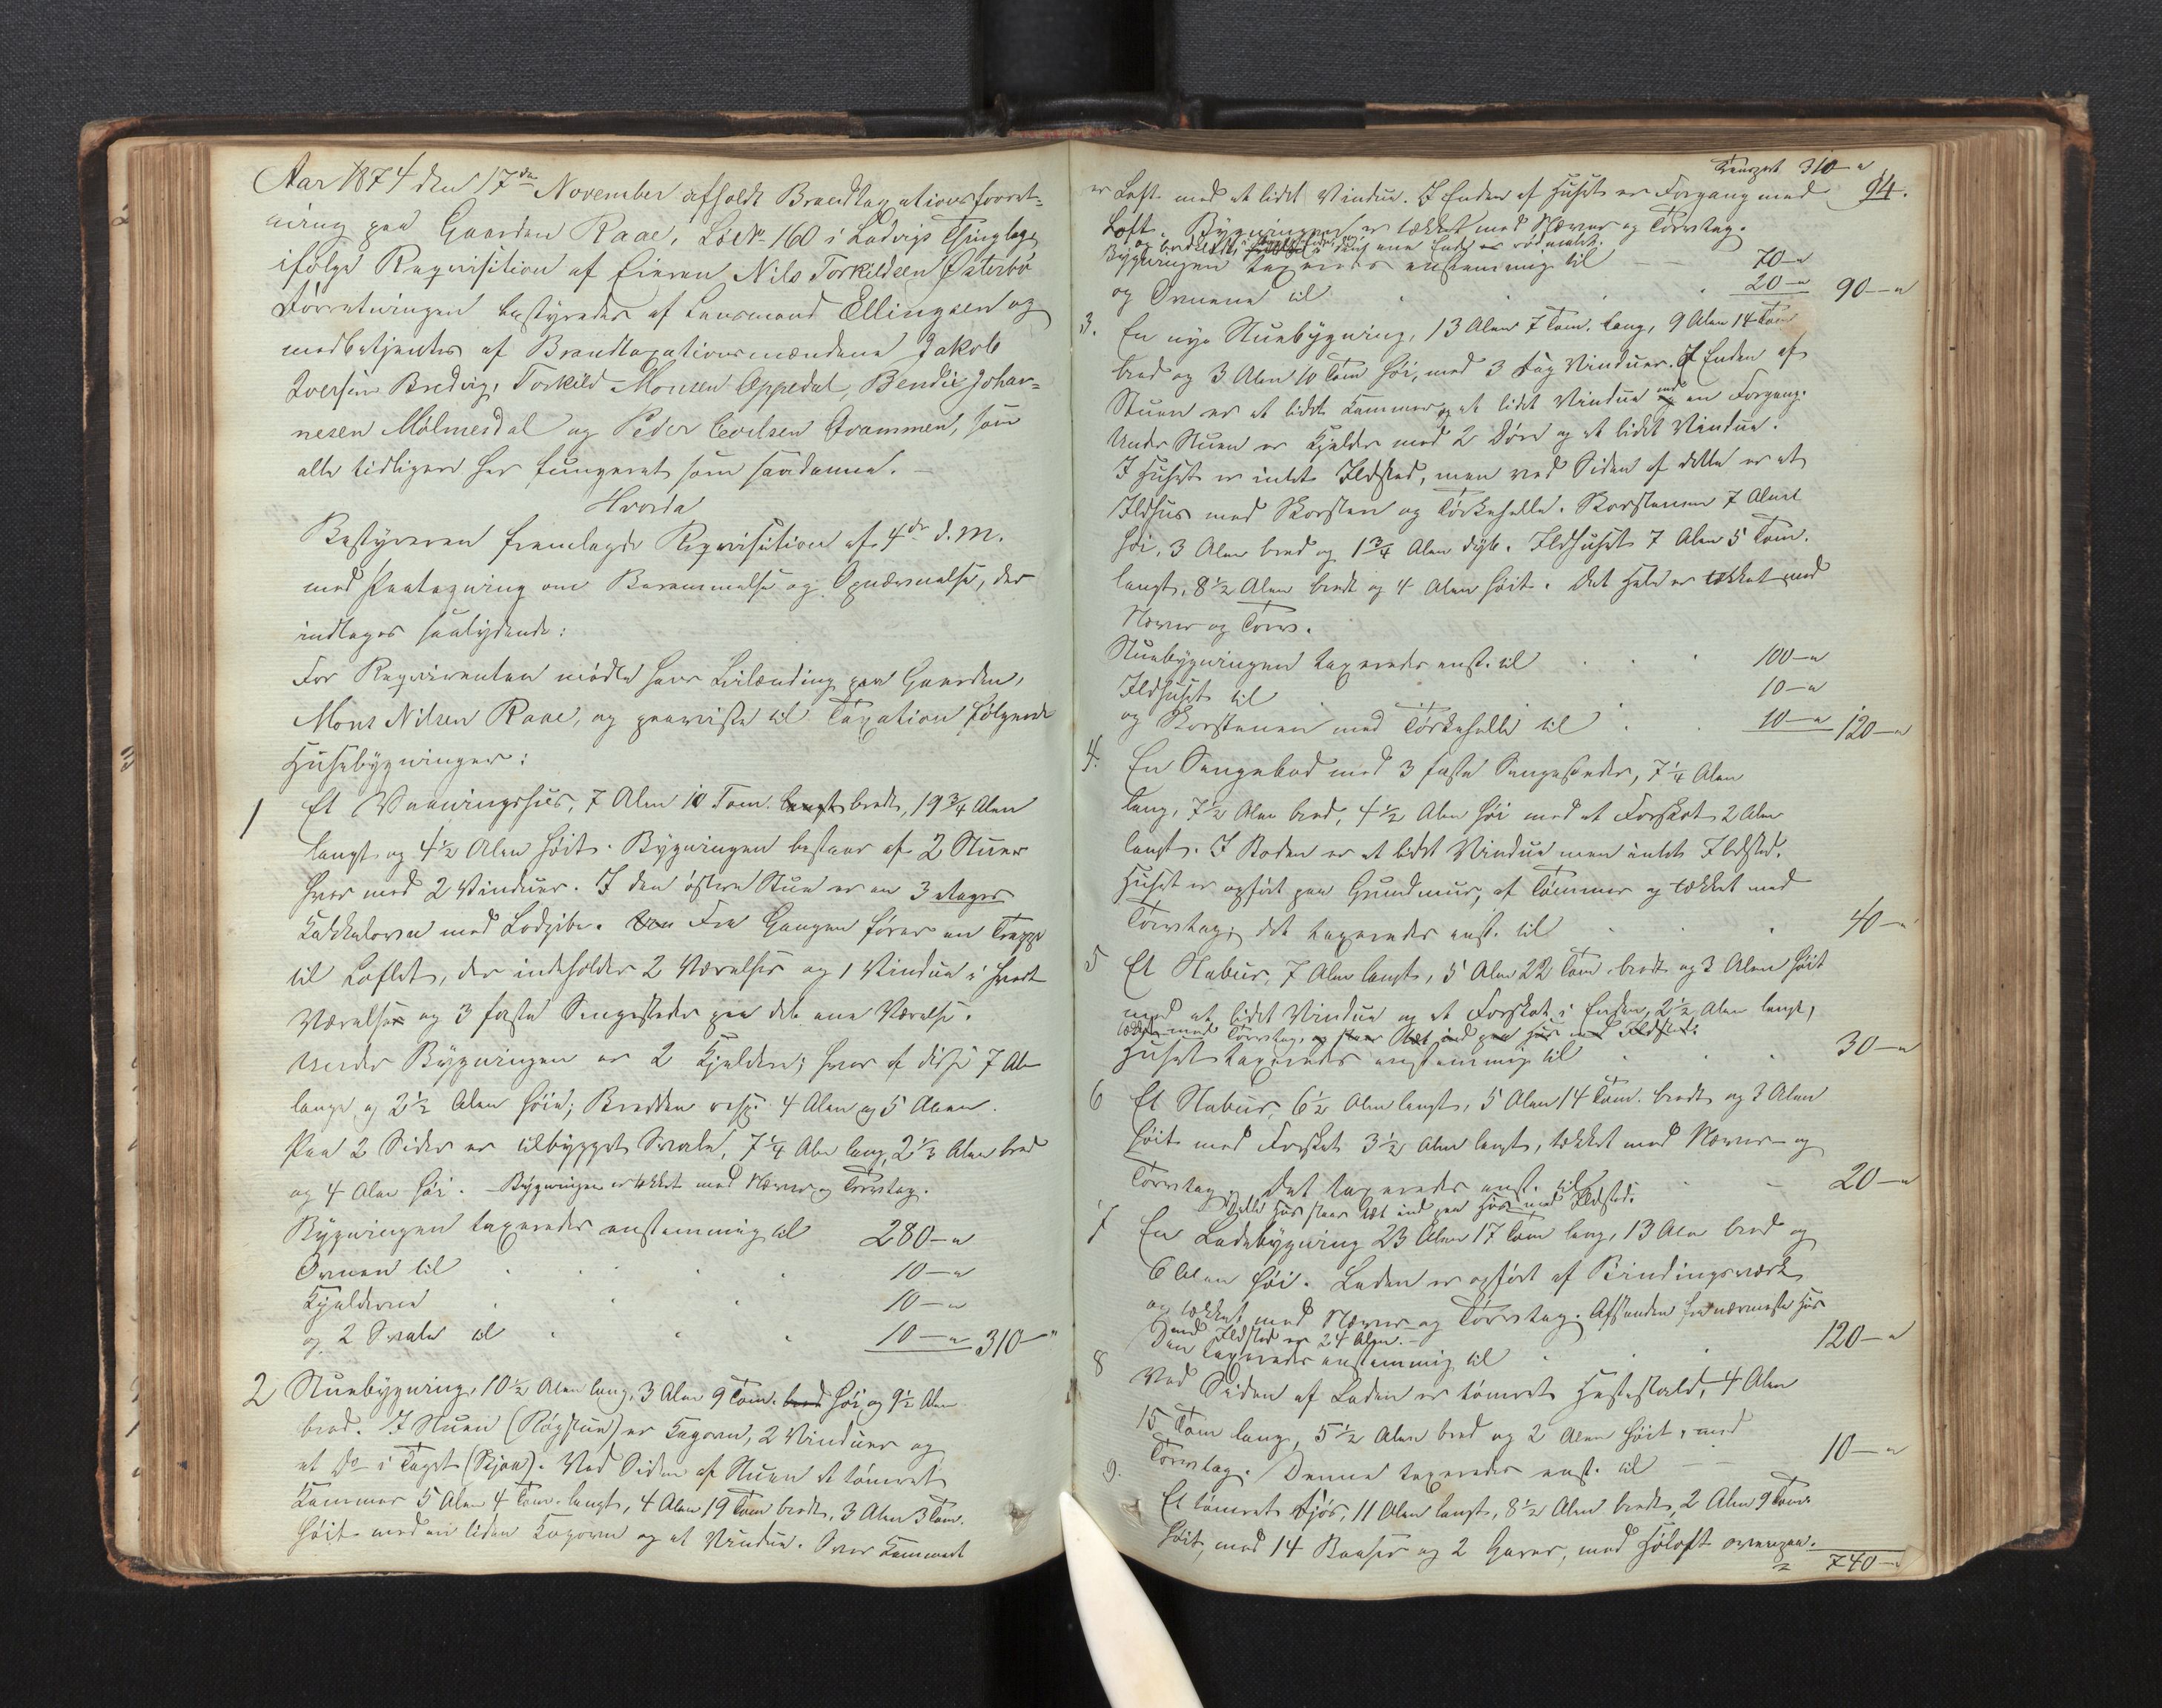 Aar 1874 den 17de November afholdt Brandtaxationsforret-
ning paa Gaarden Raae, LøbNo 160 i Ladvigs Thinglag,
ifølge Requisition af Eieren Nils Torkildsen Østerbø
Forretningen bestyredes af Lensmand Ellingsen og
medbetjentes af Brandtaxationsmændene Jakob
Iversen Bredvig, Torkild Monsen Oppedal, Bendix Johan-
nesen Mølmesdal og Peder Qvammen, som
alle tidligere har fungeret som saadanne. –
Hvorda
Bestyreren fremlagde Requisition af 4de d. M.
med Paategning om Berammelse og Opnævnelse, der
indtages saalydende:
For Requirenten mødte hans Leilænding paa Gaarden,
Mons Nilsen Raae, og paaviste til Taxation følgende
Husebygninger:
1 Et Vaaningshus, 7 Alen 10 Tom. langt bredt, 19 3/4 Alen
langt og 4 1/2 Alen høit. Bygningen bestaar af 2 Stuer
hver med 2 Vinduer. I den østre Stue er en 3 etages
Kakkelovn med Fra Gangen fører en Trappe
til Loftet, der indeholder 2 Værelser og 1 Vindue i hvert
Værelse og 3 faste Sengesteder paa det ene Værelse.
Under Bygningen er 2 Kjeldere; hver af disse 7 Al.
lange og 2 1/2 Alen høie; Bredden resp. 4 Alen og 5 Alen.
Paa 2 Sider er tilbygget Svale, 7 1/4 Alen lang, 2 1/3 Alen bred
og 4 Alen høi. – Bygningen er tækket med Næver og Torvtag.
Bygningen taxeredes enstemmig til 280 – "
Ovnen til . . . . 10 – "
Kjelderne . . . 10 – "
og 2 Svale til . . . 10 – " 310 – "
2 Stuebygning, 10 1/2 Alen lang, 3 Alen 9 Tom. bred høi og 9 1/2 Alen
bred. I Stuen (Røgstue) er Kagovn, 2 Vinduer og
et do i Taget (Ljore). Ved Siden af Stuen et tømret
Kammer 5 Alen 4 Tom. langt, 4 Alen 19 Tom bredt, 3 Alen 3 Tom.
høit med en liden Kagovn og et Vindue. Over Kammeret
Transport 310 – "
94.
er Loft med et lidet Vindue. I Enden af Huset er Forgang med
Loft. Bygningen er tækket med Næver og Torvtag.
og bordklædt i den ene Ende er rødmalet.
Bygningen taxeredes enstemmig til – – 70 – "
og Ovnene til . . . . 20 – " 90 – "
3. En nye Stuebygning, 13 Alen 7 Tom. lang, 9 Alen 14 Tom
bred og 3 Alen 10 Tom høi, med 3 Fag Vinduer. I Enden af
Stuen er et lidet Kammer og et lidet Vindue og en Forgang.
Under Stuen er Kjelder med 2 Døre og et lidet Vindue.
I Huset er intet Ildsted, men ved Siden af dette er et
Ildhus med Skorsten og Tørkehelle. Skorstenen 7 Alen
høi, 3 Alen bred og 1 3/4 Alen dyb. Ildhuset 7 Alen 5 Tom.
langt, 8 1/2 Alen bredt og 4 Alen høit. Det Hele er tækket med
Næver og Torv.
Stuebygningen taxeredes enst. til . . . 100 – "
Ildhuset til 10 – "
og Skorstenen med Tørkehelle til . . 10 – " 120 – "
4. En Sengebod med 3 faste Sengesteder, 7 1/4 Alen
lang, 7 1/2 Alen bred, 4 1/2 Alen høi med et Forskot 2 Alen
langt. I Boden er et lidet Vindue men intet Ildsted.
Huset er opført paa Grundmur, af Tømmer og tækket med
Torvtag; det taxeredes enst. til . . . 40 – "
5 Et Stabur, 7 Alen langt, 5 Alen 22 Tom. bredt og 3 Alen høit
med et lidet Vindue og et Forskot i Enden, 2 1/2 Alen langt,
tækket med Torvtag, og staar tæt ind paa Hus med Ildsted.
Huset taxeredes enstemmig til . . . 30 – "
6 Et Stabur, 6 1/2 Alen langt, 5 Alen 14 Tom. bredt og 3 Alen
høit med Forskot 3 1/2 Alen langt, tækket med Næver og
Torvtag. Det taxeredes enst. til . – 20 – "
Dette Hus staar tæt ind paa Hus med Ildsted.
7 En Ladebygning 23 Alen 17 Tom lang, 13 Alen bred og
6 Alen høi. Laden er opført af Bindingsværk
og tækket med Næver og Torvtag. Afstanden fra nærmeste Hus
med Ildsted er 24 Alen. –
Den taxeredes enstemmig til . . . 120 – "
8 Ved Siden af Laden er tømret Hestestald, 4 Alen
15 Tom lang, 5 1/2 Alen bred og 2 Alen høit, med
Torvtag. Denne taxeredes enst. til – – 10 – "
9. Et tømret Fjøs, 11 Alen langt, 8 1/2 Alen bredt, 2 Alen 9 Tom.
høit, med 14 Baaser og 2 Garer, med Høloft ovenpaa.
740 – "